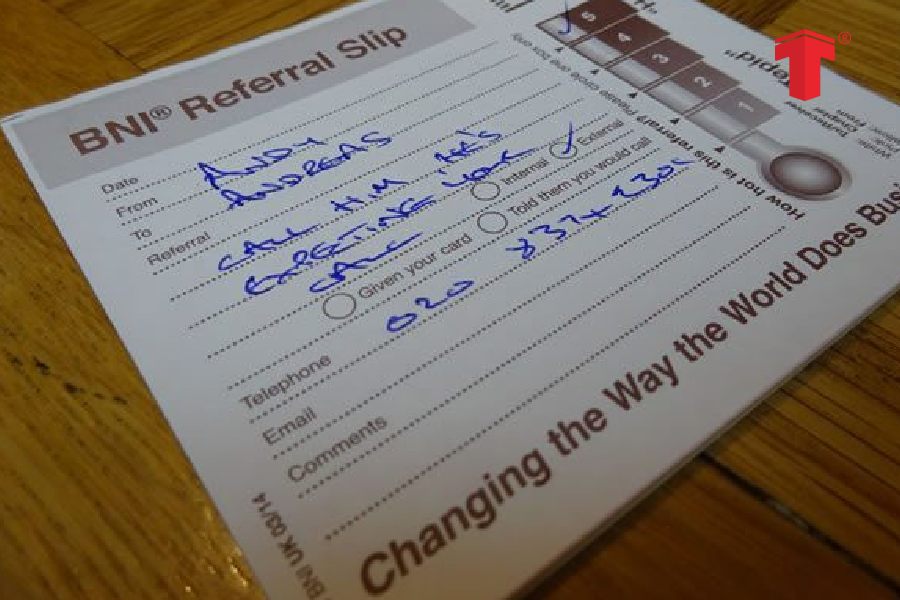 BNI® Referral Slip
Date
From ANDY
To ANDREAS
Referral CALL HIM, HE'S
EXPECTING YOUR
CALL
Internal External
Given your card Told them you would call
Telephone 020 8374
Email
Comments
Changing the Way the World Does Busi
BNI UK 03/14
How hot is this referral?
1
2
3
4
5
Tepid
T®